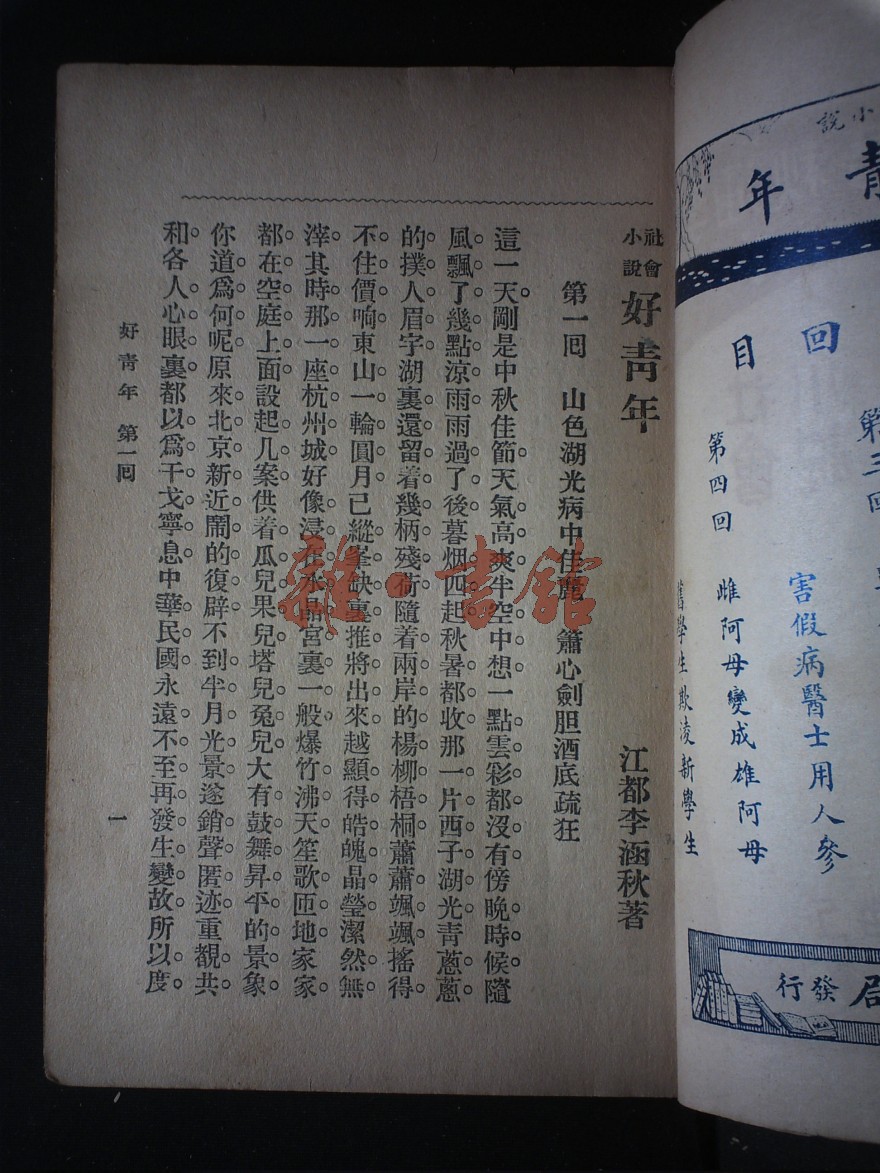 小說
青年
回目
第三回
害假病醫士用人參
第四回 雌阿母變成雄阿母
舊學生欺凌新學生
發行
社會小說 好青年 江都李涵秋著
第一回 山色湖光病中佳麗 簫心劍胆酒底疏狂
這一天剛是中秋佳節天氣高爽半空中想一點雲彩都沒有傍晚時候隨
風飄了幾點涼雨雨過了後暮烟四起秋暑都收那一片西子湖光青蔥蔥
的撲人眉宇湖裏還留着幾柄殘荷隨着兩岸的楊柳梧桐蕭蕭颯颯搖得
不住價响東山一輪圓月已縱峯缺裏推將出來越顯得皓魄晶瑩潔然無
滓其時那一座杭州城好像浸在水晶宮裏一般爆竹沸天笙歌匝地家家
都在空庭上面設起几案供着瓜兒果兒塔兒兔兒大有鼓舞昇平的景象
你道爲何呢原來北京新近鬧的復辟不到半月光景遂銷聲匿迹重覩共
和各人心眼裏都以爲干戈寧息中華民國永遠不至再發生變故所以度
好青年 第一回
一
雜·書館